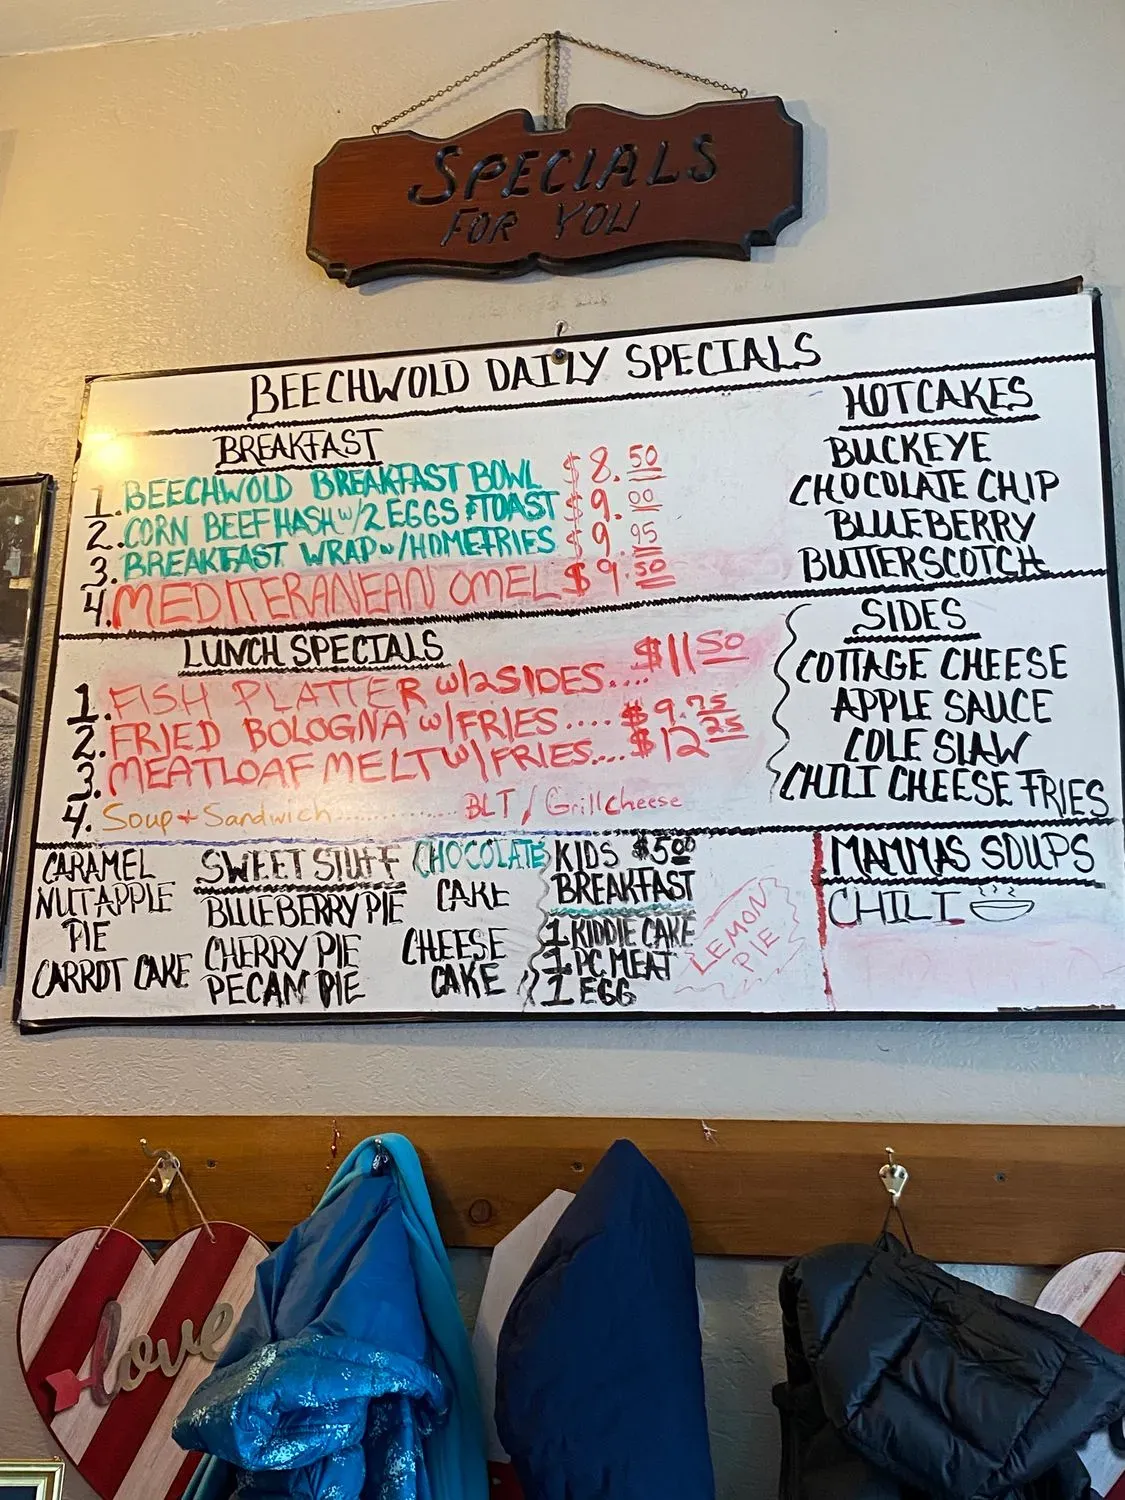 SPECIALS
FOR YOU
BEECHWOLD DAILY SPECIALS
BREAKFAST
1. BEECHWOLD BREAKFAST BOWL $8.50
2. CORN BEEF HASH w/2 EGGS & TOAST $9.00
3. BREAKFAST WRAP w/HOMEFRIES $9.95
4. MEDITERANEAN OMEL $9.50
HOTCAKES
BUCKEYE
CHOCOLATE CHIP
BLUEBERRY
BUTTERSCOTCH
LUNCH SPECIALS
1. FISH PLATTER w/2SIDES.... $11 50
2. FRIED BOLOGNA w/FRIES .... $9.75
3. MEATLOAF MELT w/FRIES.... $12 25
4. Soup + Sandwich.............. BLT / Grillcheese
SIDES
COTTAGE CHEESE
APPLE SAUCE
COLE SLAW
CHILI CHEESE FRIES
SWEET STUFF
CARAMEL
NUT APPLE
PIE
CARROT CAKE
BLUEBERRY PIE
CHERRY PIE
PECAN PIE
CHOCOLATE
CAKE
CHEESE
CAKE
KIDS $5.00
BREAKFAST
1 KIDDIE CAKE
1 PC MEAT
1 EGG
LEMON
PIE
MAMMAS SOUPS
CHILI
love